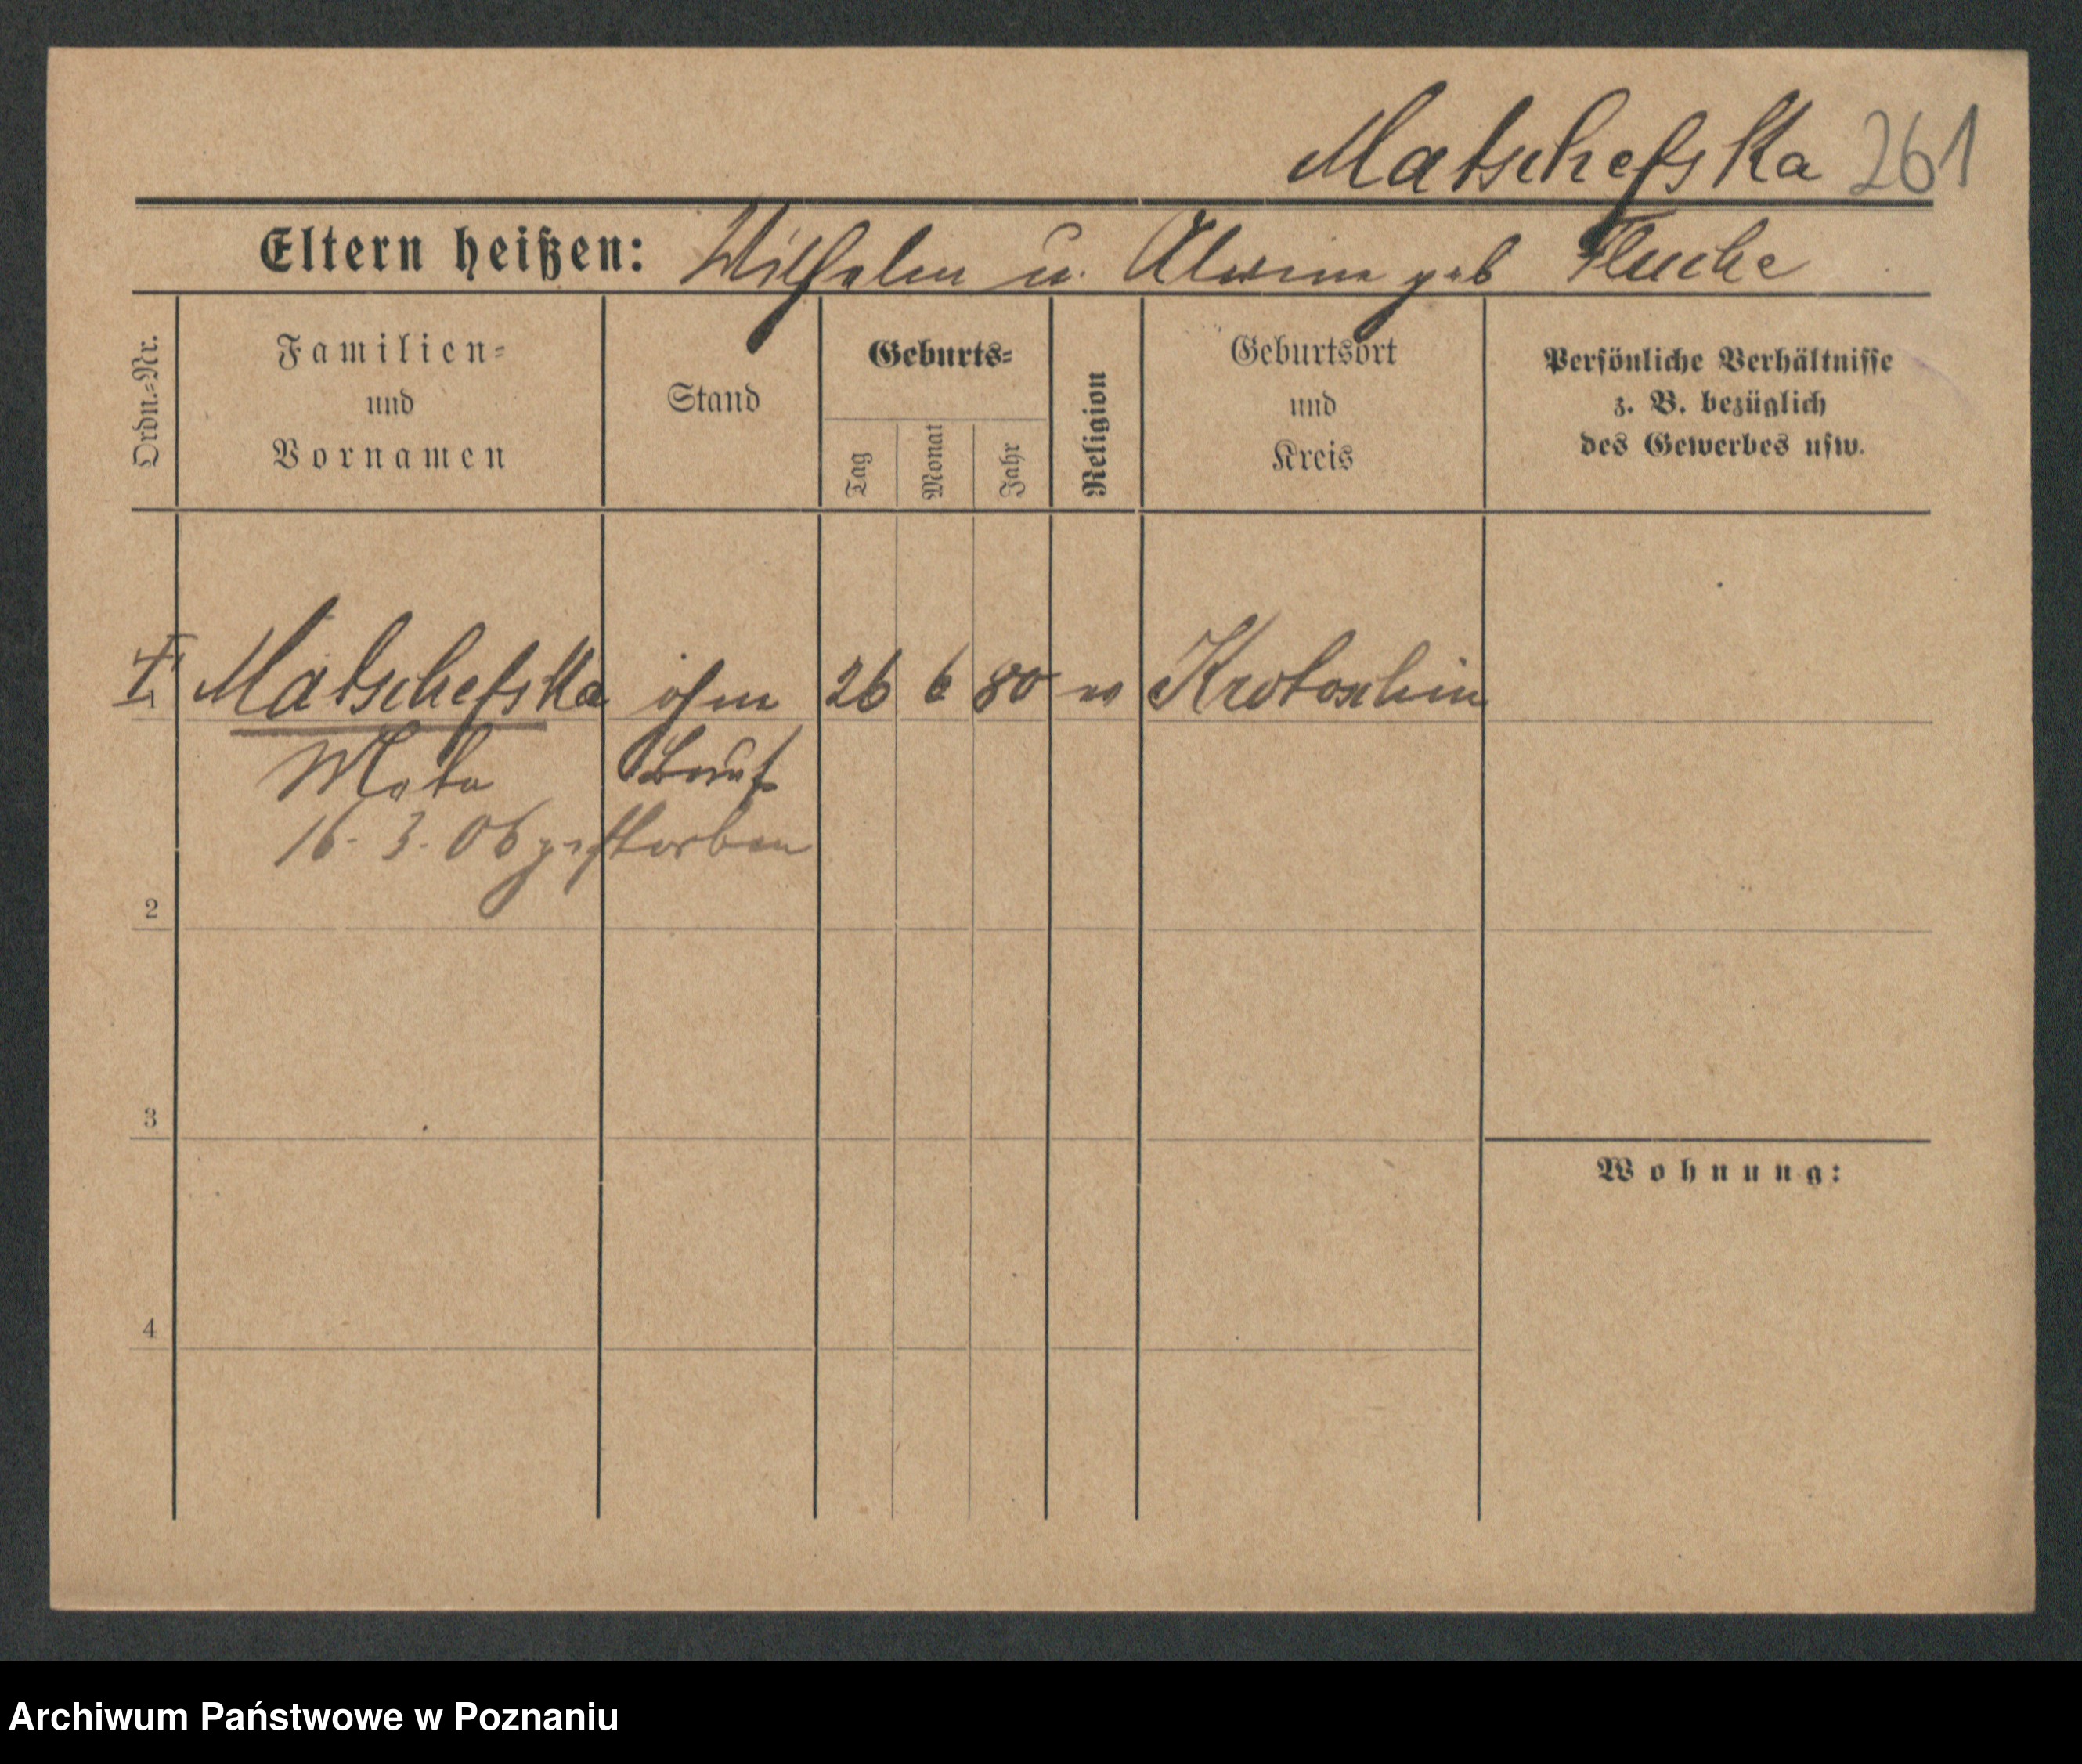 Matschefska 261
Eltern heißen: Wilhelm u. Alwine geb Flucke
Ordn.=Nr.
Familien=
und
Vornamen
Stand
Geburts=
Tag
Monat
Jahr
Religion
Geburtsort
und
Kreis
Persönliche Verhältnisse
z. B. bezüglich
des Gewerbes usw.
Matschefska ohne 26 6 80 ev Krotoschin
Meta Beruf
16. 3. 06 gestorben
2
3
Wohnung:
4
Archiwum Państwowe w Poznaniu